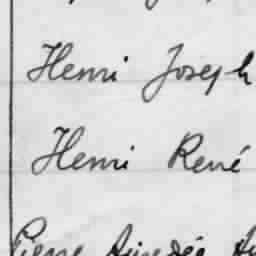 Henri Joseph
Henri René
Pierre Amédée